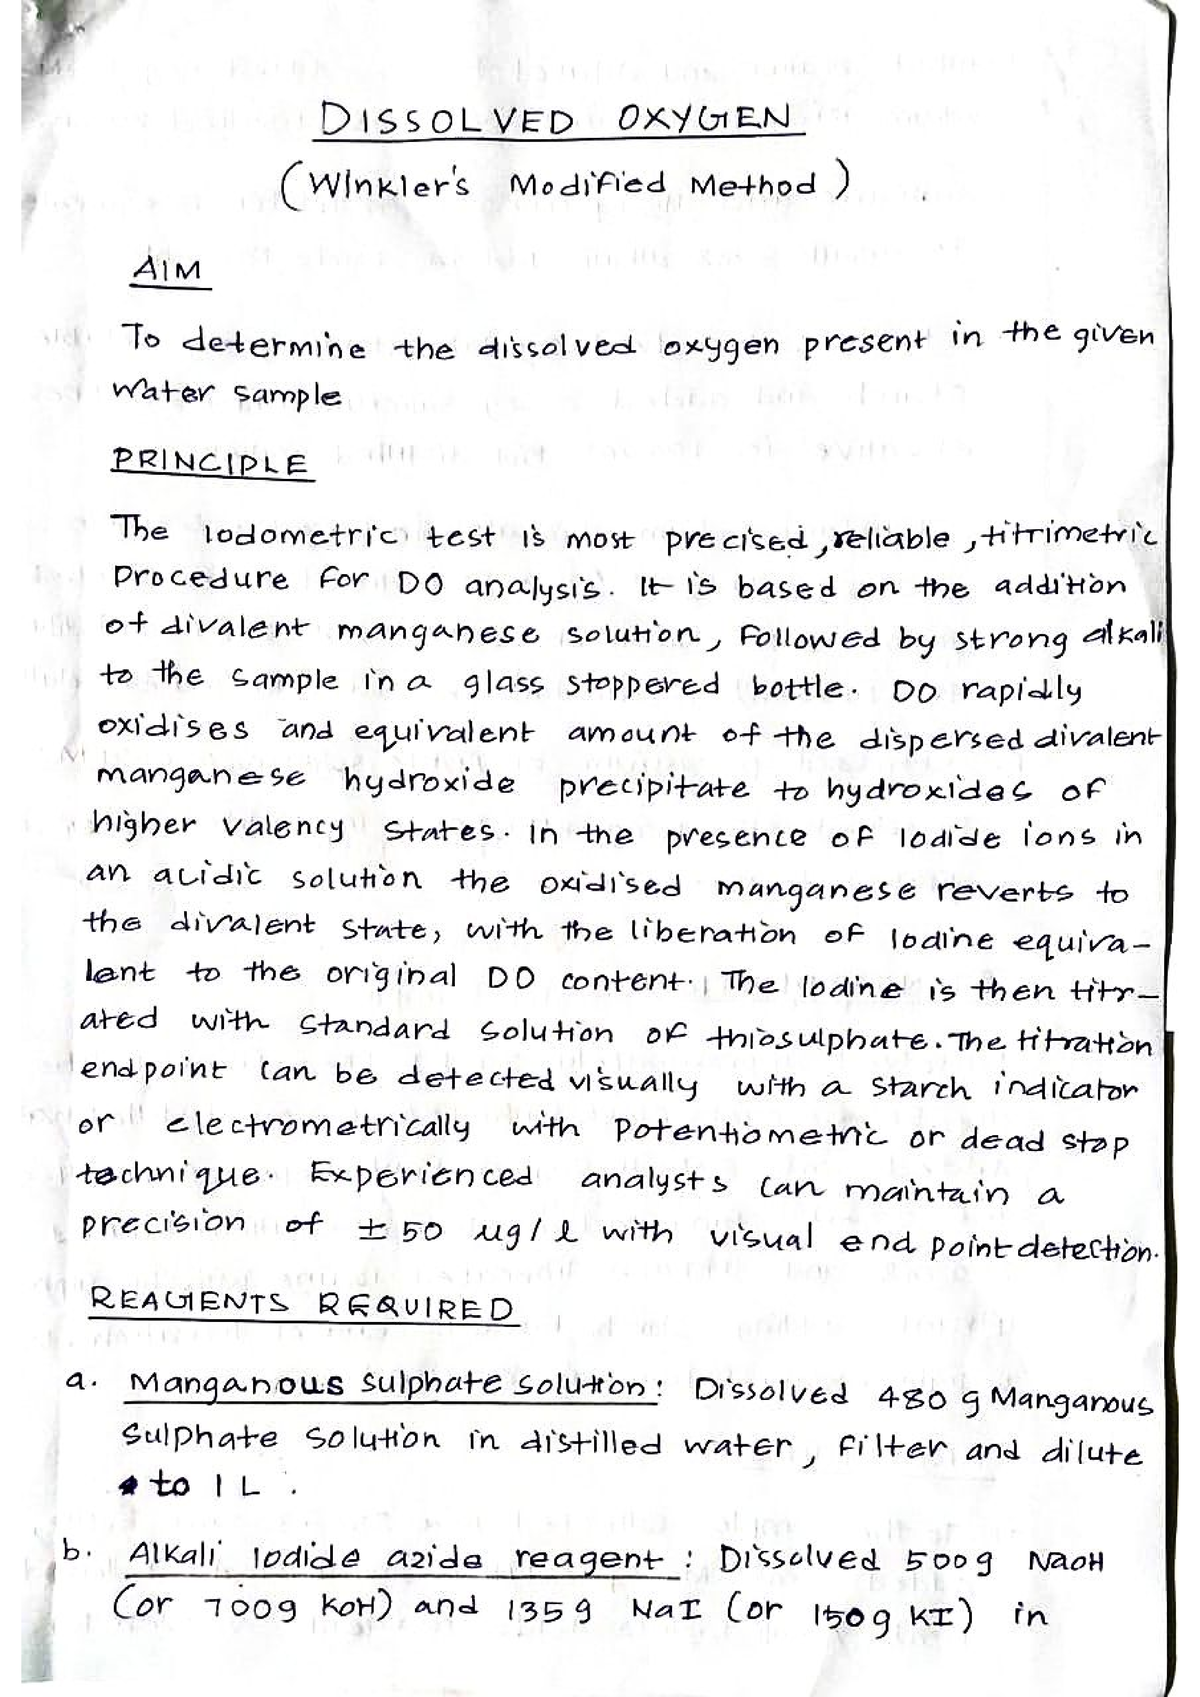 DISSOLVED OXYGEN
(Winkler's Modified Method)
AIM
To determine the dissolved oxygen present in the given
Water sample
PRINCIPLE
The Iodometric test is most precised, reliable, titrimetric
Procedure for DO analysis. It is based on the addition
of divalent manganese solution, followed by strong alkali
to the sample in a glass stoppered bottle. DO rapidly
oxidises and equivalent amount of the dispersed divalent
manganese hydroxide precipitate to hydroxides of
higher valency states. In the presence of Iodide ions in
an acidic solution the oxidised manganese reverts to
the divalent state, with the liberation of Iodine equiva-
lent to the original DO content. The Iodine is then titr-
ated with standard solution of thiosulphate. The titration
endpoint can be detected visually with a starch indicator
or electrometrically with Potentiometric or dead stop
technique. Experienced analysts can maintain a
precision of ± 50 ug/l with visual end point detection.
REAGENTS REQUIRED
a. Manganous sulphate solution: Dissolved 480 g Manganous
Sulphate solution in distilled water, filter and dilute
to 1 L.
b. Alkali Iodide azide reagent: Dissolved 500g NaOH
(or 700g KOH) and 135g NaI (or 150g KI) in